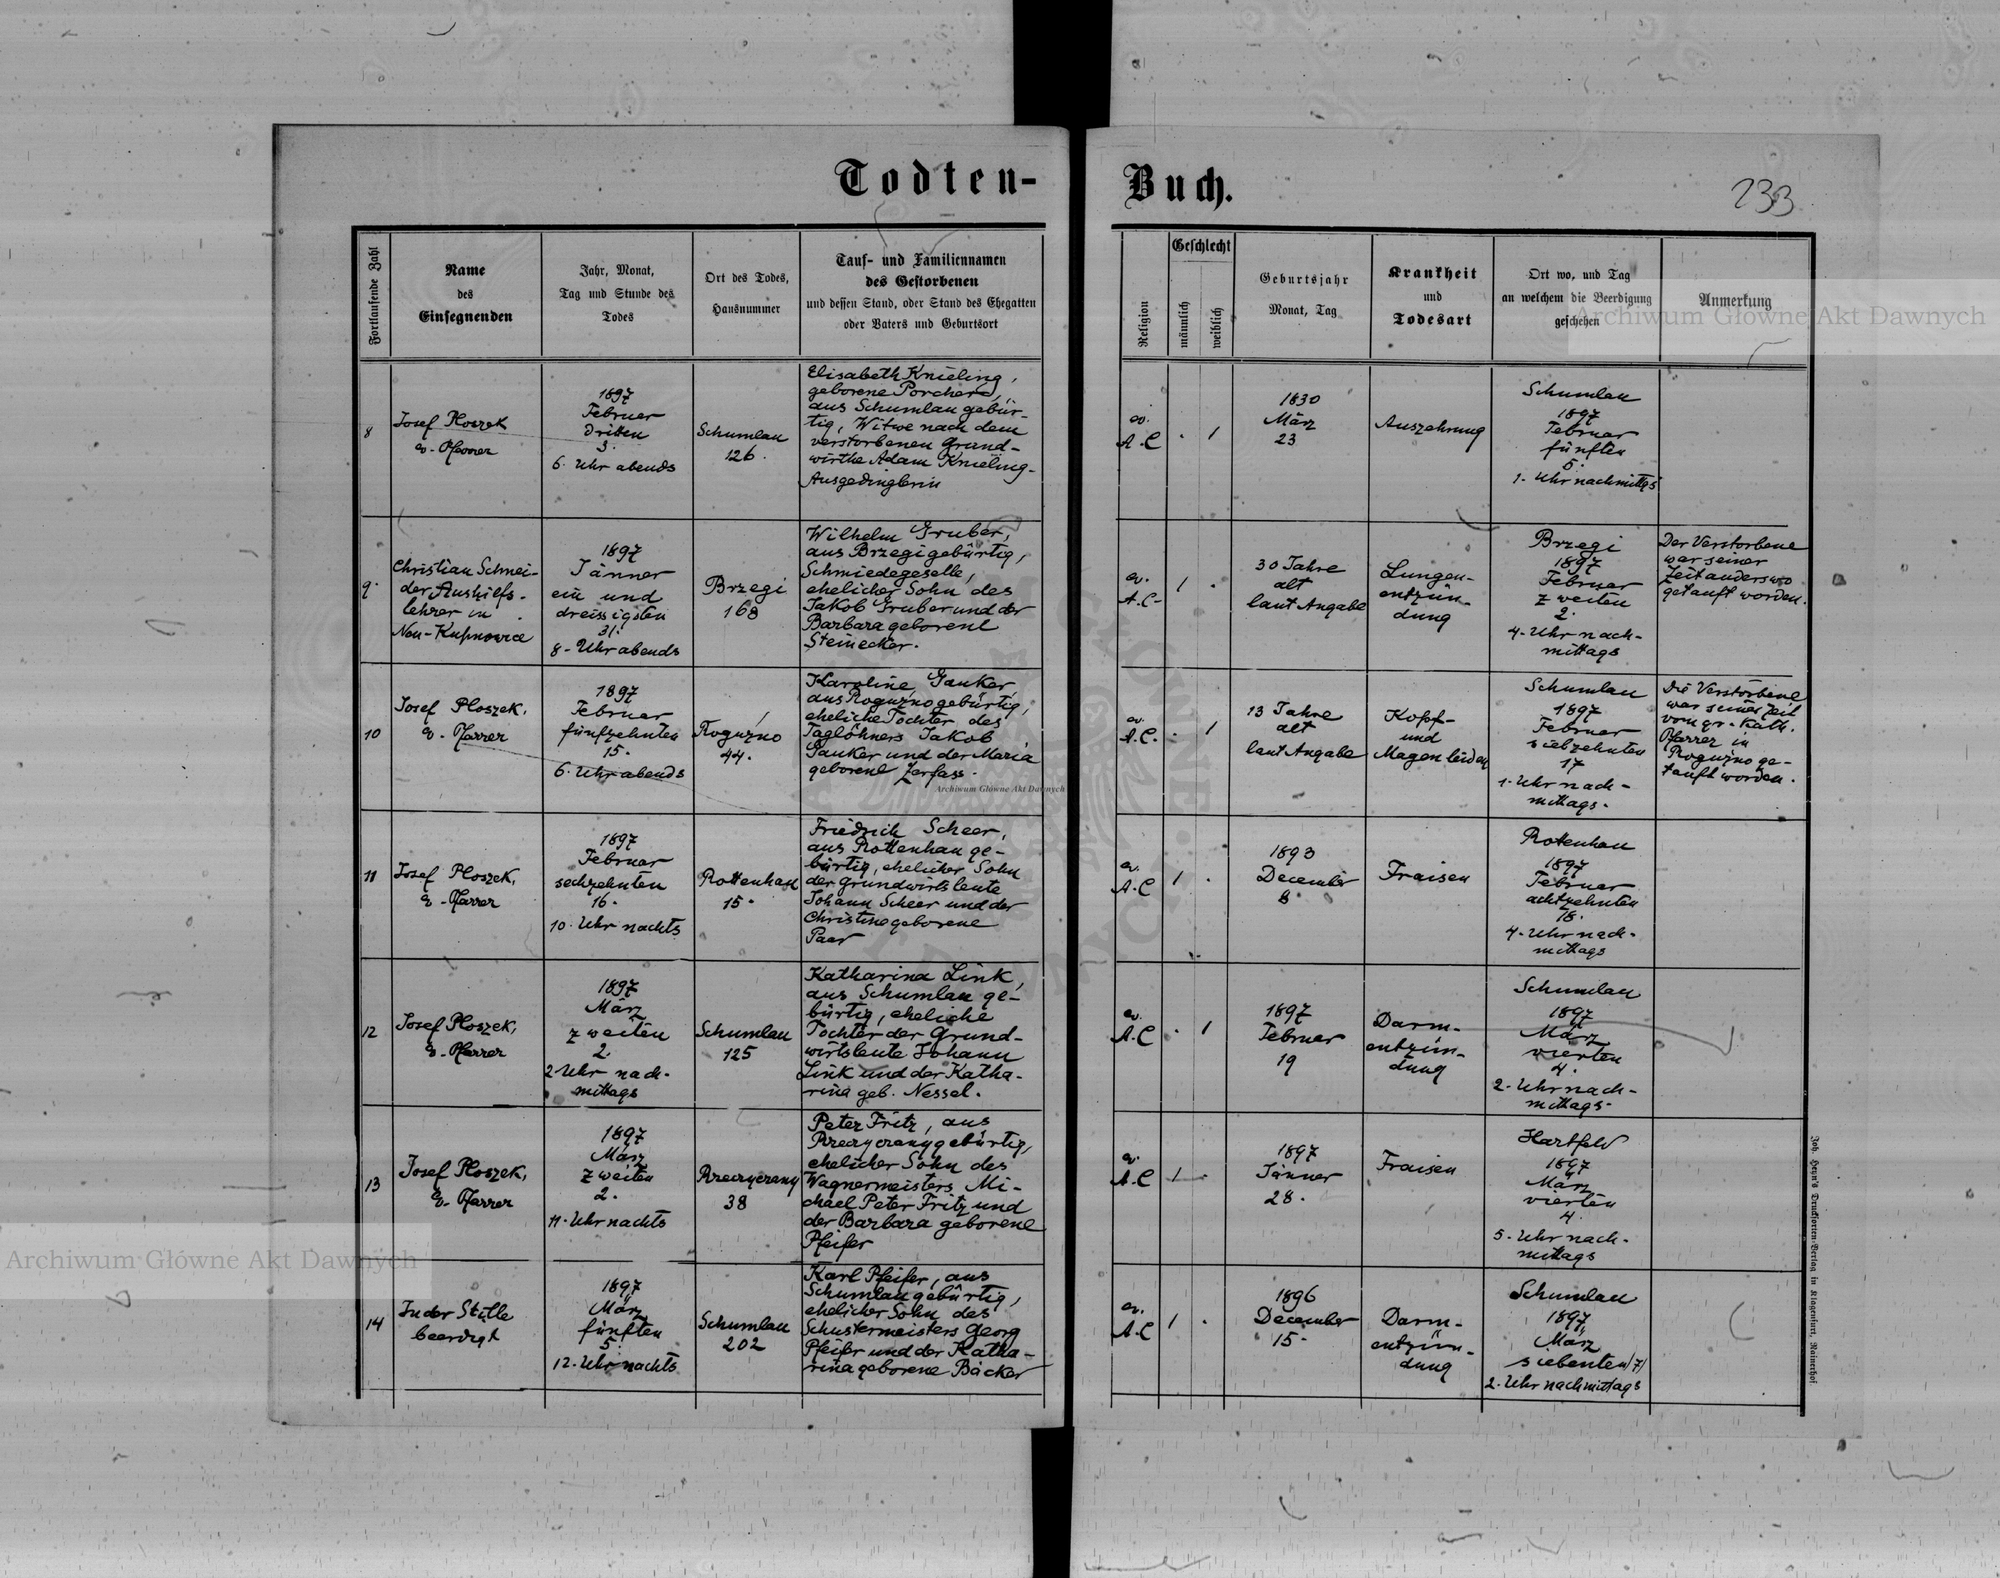 Todten-
Buch.
233
Fortlaufende Zahl
Name
des
Einsegnenden
Jahr, Monat,
Tag und Stunde des
Todes
Ort des Todes,
Hausnummer
Tauf- und Familiennamen
des Gestorbenen
und dessen Stand, oder Stand des Ehegatten
oder Vaters und Geburtsort
Religion
Geschlecht
männlich
weiblich
Geburtsjahr
Monat, Tag
Krankheit
und
Todesart
Ort wo, und Tag
an welchem die Beerdigung
geschehen
Anmerkung
Archiwum Główne Akt Dawnych
8
Josef Ploszek
ev. Pfarrer
1897
Februar
dritten
3.
6. Uhr abends
Schumlau
126.
Elisabeth Knieling,
geborene Porcher,
aus Schumlau gebür-
tig, Witwe nach dem
verstorbenen Grund-
wirthe Adam Knieling-
Ausgedinglerin
ev.
A.C
. 1
1830
März
23
Auszehrung
Schumlau
1897
Februar
fünften
5.
1. Uhr nachmittgs
9
Christian Schnei-
der, Aushilfs-
lehrer in
Neu-Kupnowice
1897
Jänner
ein und
dreissigsten
31.
8- Uhr abends
Brzegi
168
Wilhelm Gruber,
aus Brzegi gebürtig,
Schmiedegeselle,
ehelicher Sohn des
Jakob Gruber und der
Barbara geborene
Steinecker.
ev.
A.C-
1 .
30 Jahre
alt
laut Angabe
Lungen-
entzün-
dung
Brzegi
1897
Februar
zweiten
2.
4. Uhr nach-
mittags
Der Verstorbene
war seiner
Zeit anderswo
getauft worden.
10
Josef Ploszek,
ev. Pfarrer
1897
Februar
fünfzehnten
15.
6. Uhr abends
Roguzno
44.
Karoline Ganker,
aus Roguzno gebürtig,
eheliche Tochter des
Taglöhners Jakob
Ganker und der Maria
geborene Zerfass.
Archiwum Główne Akt Dawnych
ev.
A.C.
. 1
13 Jahre
alt
laut Angabe
Kopf-
und
Magenleiden
Schumlau
1897
Februar
siebzehnten
17
1. Uhr nach-
mittags.
Die Verstorbene
war seiner Zeit
vom gr. kath.
Pfarrer in
Roguzno ge-
tauft worden.
11
Josef Ploszek,
ev. Pfarrer
1897
Februar
sechzehnten
16.
10. Uhr nachts
Rottenhan
15.
Friedrich Scheer,
aus Rottenhan ge-
bürtig, ehelicher Sohn
der Grundwirtsleute
Johann Scheer und der
Christine geborene
Paar
ev.
A.C
1 .
1893
December
8.
Fraisen
Rottenhan
1897
Februar
achtzehnten
18.
4. Uhr nach-
mittags
12
Josef Ploszek,
ev. Pfarrer
1897
März
zweiten
2.
2. Uhr nach-
mittags
Schumlau
125
Katharina Link,
aus Schumlau ge-
bürtig, eheliche
Tochter der Grund-
wirtsleute Johann
Link und der Katha-
rina geb. Nessel.
ev.
A.C
. 1
1897
Februar
19
Darm-
entzün-
dung
Schumlau
1897
März
vierten
4.
2. Uhr nach-
mittags.
13
Josef Ploszek,
ev. Pfarrer
1897
März
zweiten
2.
11. Uhr nachts
Rzeczyczany
38
Peter Fritz, aus
Rzeczyczany gebürtig,
ehelicher Sohn des
Wagnermeisters Mi-
chael Peter Fritz und
der Barbara geborene
Pfeifer
ev.
A.C
1 .
1897
Jänner
28.
Fraisen
Hartfeld
1897
März
vierten
4.
5. Uhr nach-
mittags
14
In der Stille
beerdigt
1897
März
fünften
5.
12. Uhr nachts
Schumlau
202
Karl Pfeifer, aus
Schumlau gebürtig,
ehelicher Sohn des
Schustermeisters Georg
Pfeifer und der Katha-
rina geborene Bäcker
ev.
A.C
1 .
1896
December
15.
Darm-
entzün-
dung
Schumlau
1897
März
siebenten /7/
2. Uhr nachmittags
Joh. Heyn's Drucksorten-Verlag in Klagenfurt, Rainerhof
Archiwum Główne Akt Dawnych